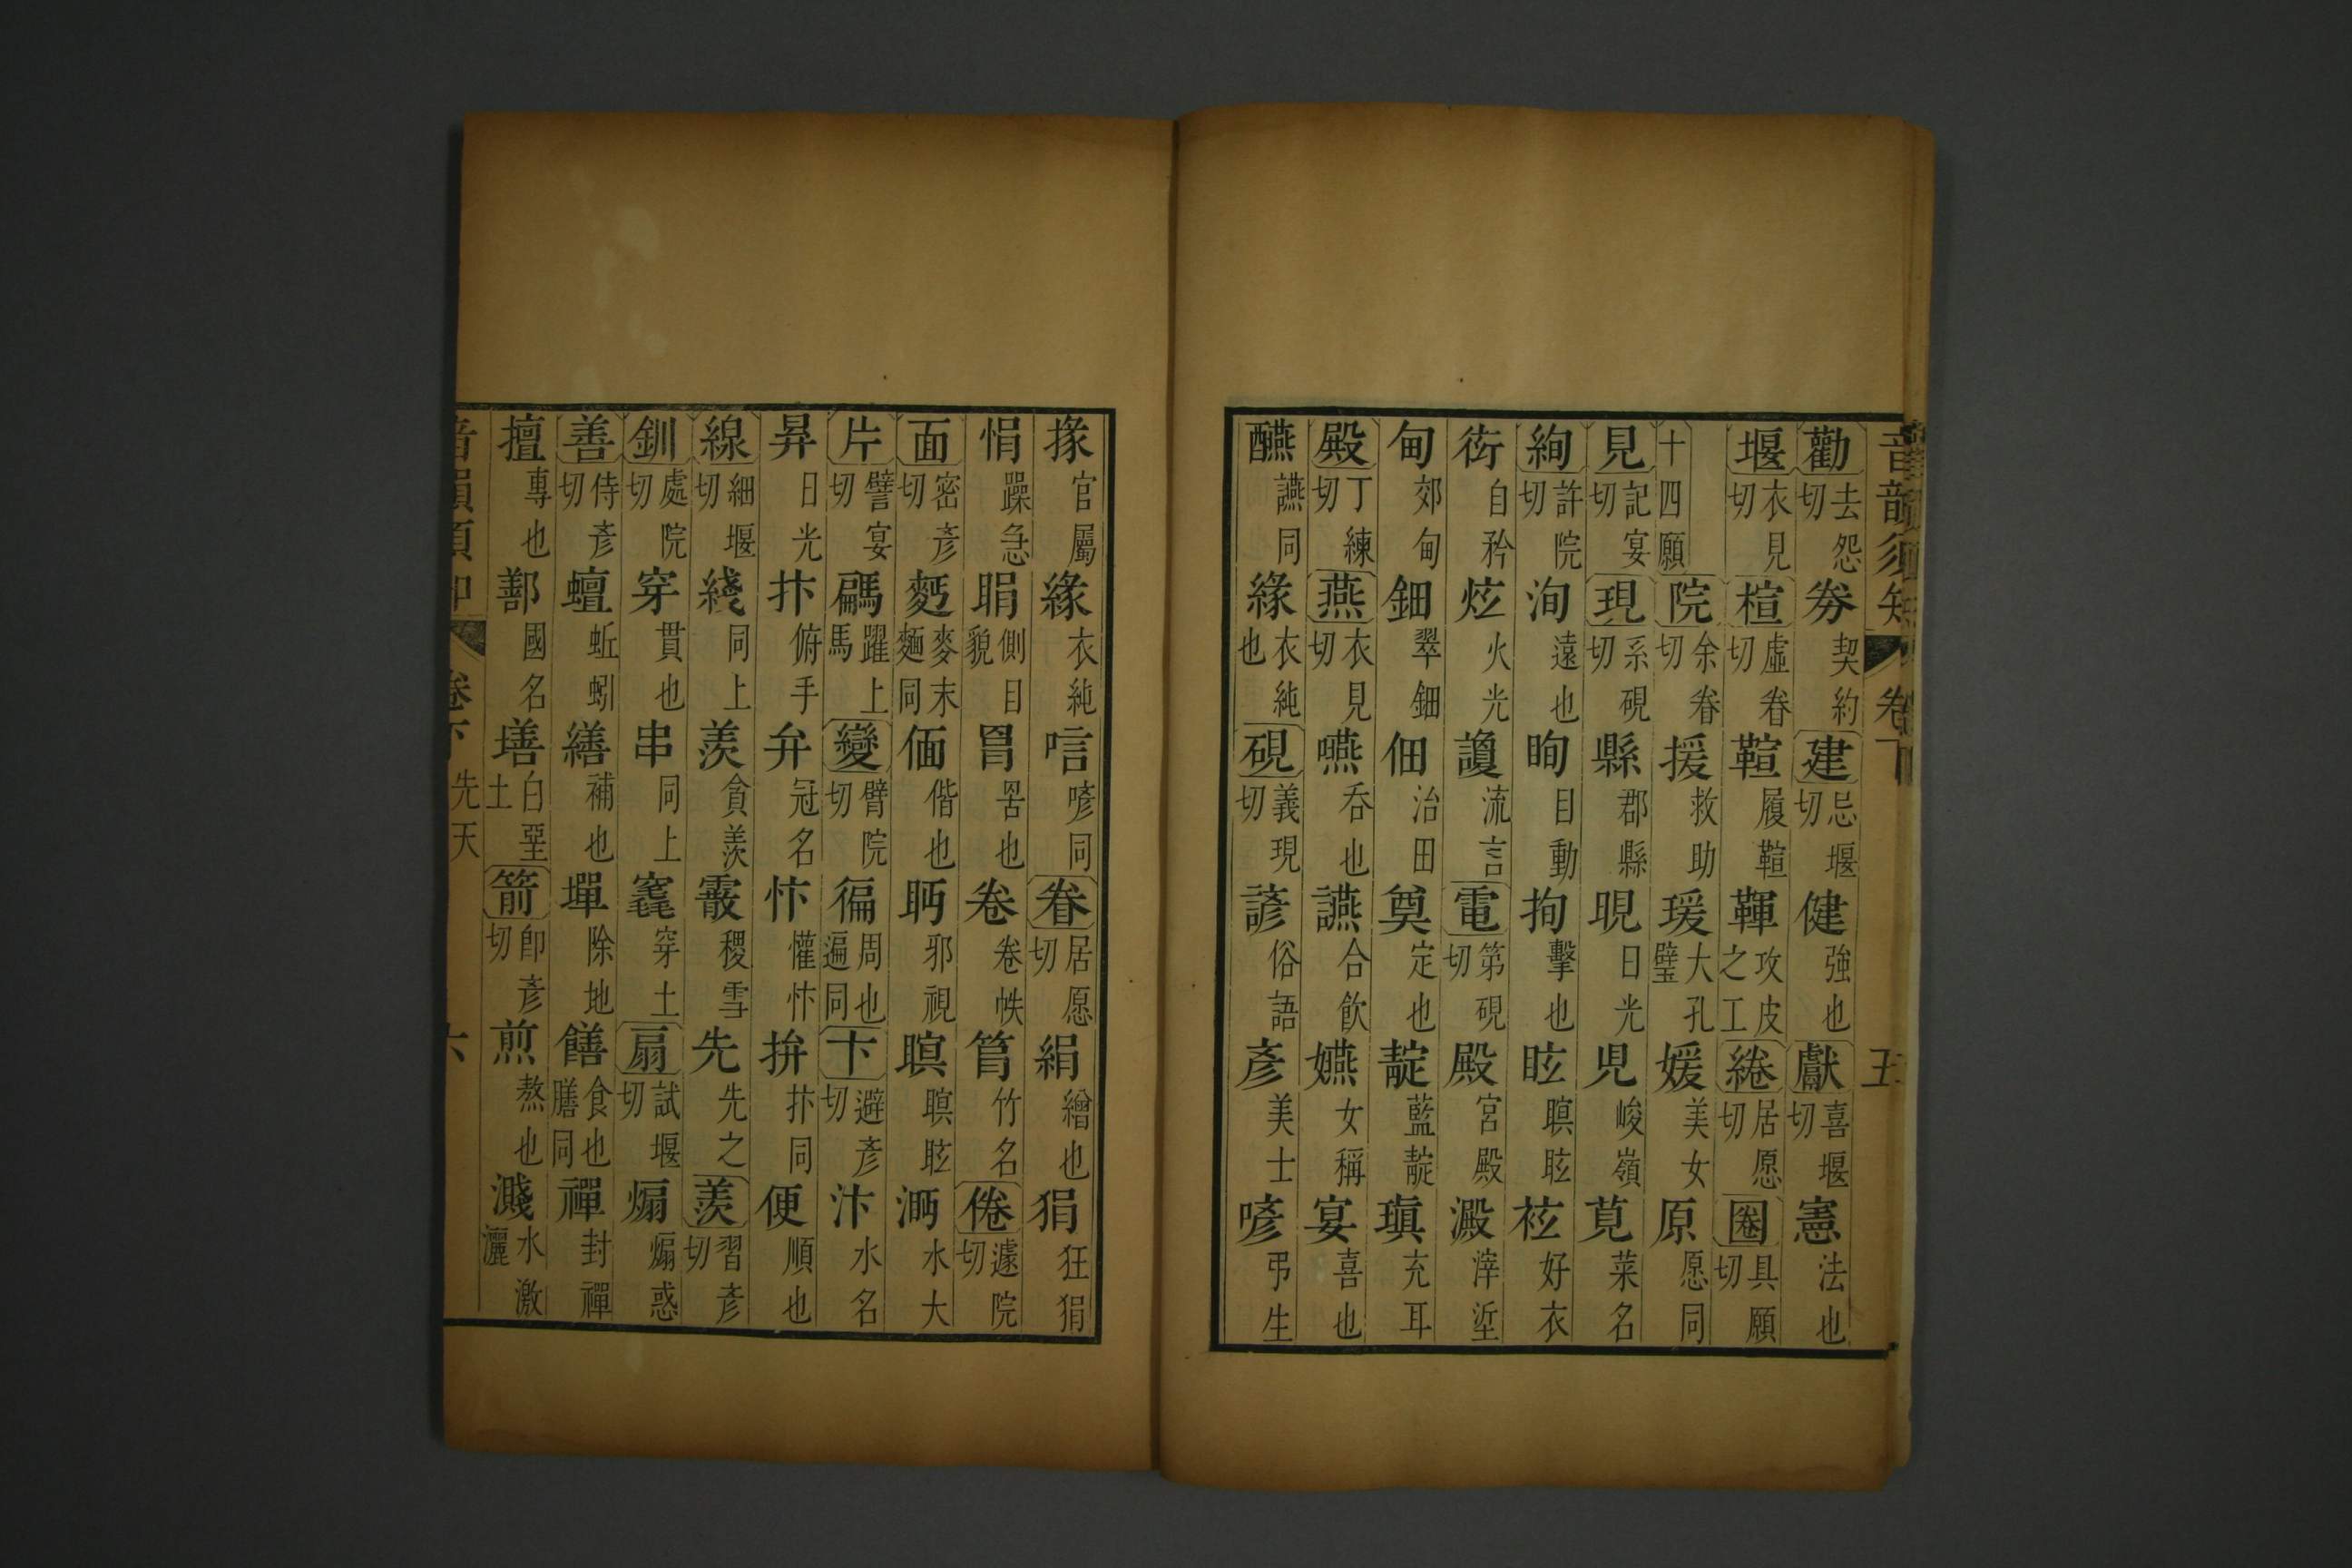 音韻須知 卷下 五
勸去怨切 劵契約 建忌堰切 健強也 獻喜堰切 憲法也
堰衣見切 楦虛眷切 鞾履鞾 鞾攻皮之工 綣居愿切 圈具願切
十四願 院余眷切 援救助 瑗大孔璧 媛美女 原愿同
見記宴切 現系硯切 縣郡縣 晛日光 俔峻嶺 莧菜名
絢許院切 洵遠也 眴目動 拘擊也 眩瞑眩 袨好衣
衒自矜 炫火光 讂流言 電第硯切 殿宮殿 澱滓垽
甸郊甸 鈿翠鈿 佃治田 奠定也 靛藍靛 瑱充耳
殿丁練切 燕衣見切 嚥吞也 讌合飲 嬿女稱 宴喜也
醼讌同 緣衣純也 硯義現切 諺俗語 彥美士 喭弔生
掾官屬 緣衣純 唁喭同 眷居愿切 絹繒也 狷狂狷
悁躁急 睊側目貌 罥罟也 卷卷帙 䇹竹名 倦遽院切
面密彥切 麪麥末麵同 偭偝也 眄邪視 瞑瞑眩 沔水大
片譬宴切 騗躍上馬 變臂院切 徧周也遍同 卞避彥切 汴水名
昪日光 抃俯手 弁冠名 忭懽忭 拚抃同 便順也
線細堰切 綫同上 羨貪羨 霰稷雪 先先之 羨習彥切
釧處院切 穿貫也 串同上 竁穿土 扇試堰切 煽煽惑
善侍彥切 蟺蚯蚓 繕補也 墠除地 饍食也膳同 禪封禪
擅專也 鄯國名 墡白堊土 箭卽彥切 煎熬也 濺水激灑
音韻須知 卷下 先天 六